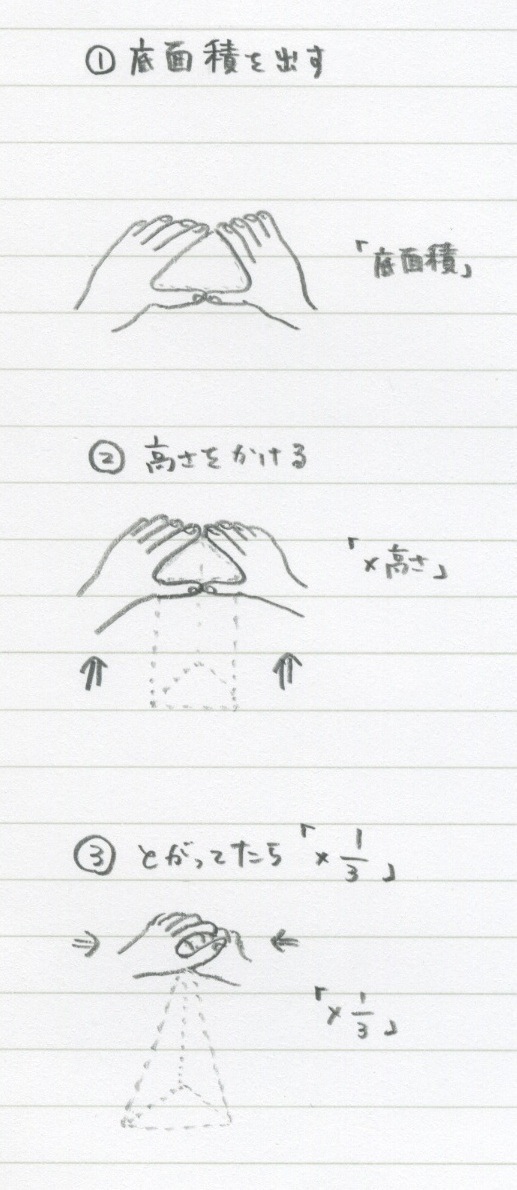 ① 底面積を出す
「底面積」
② 高さをかける
「×高さ」
③ とがってたら「× 1/3」
「× 1/3」